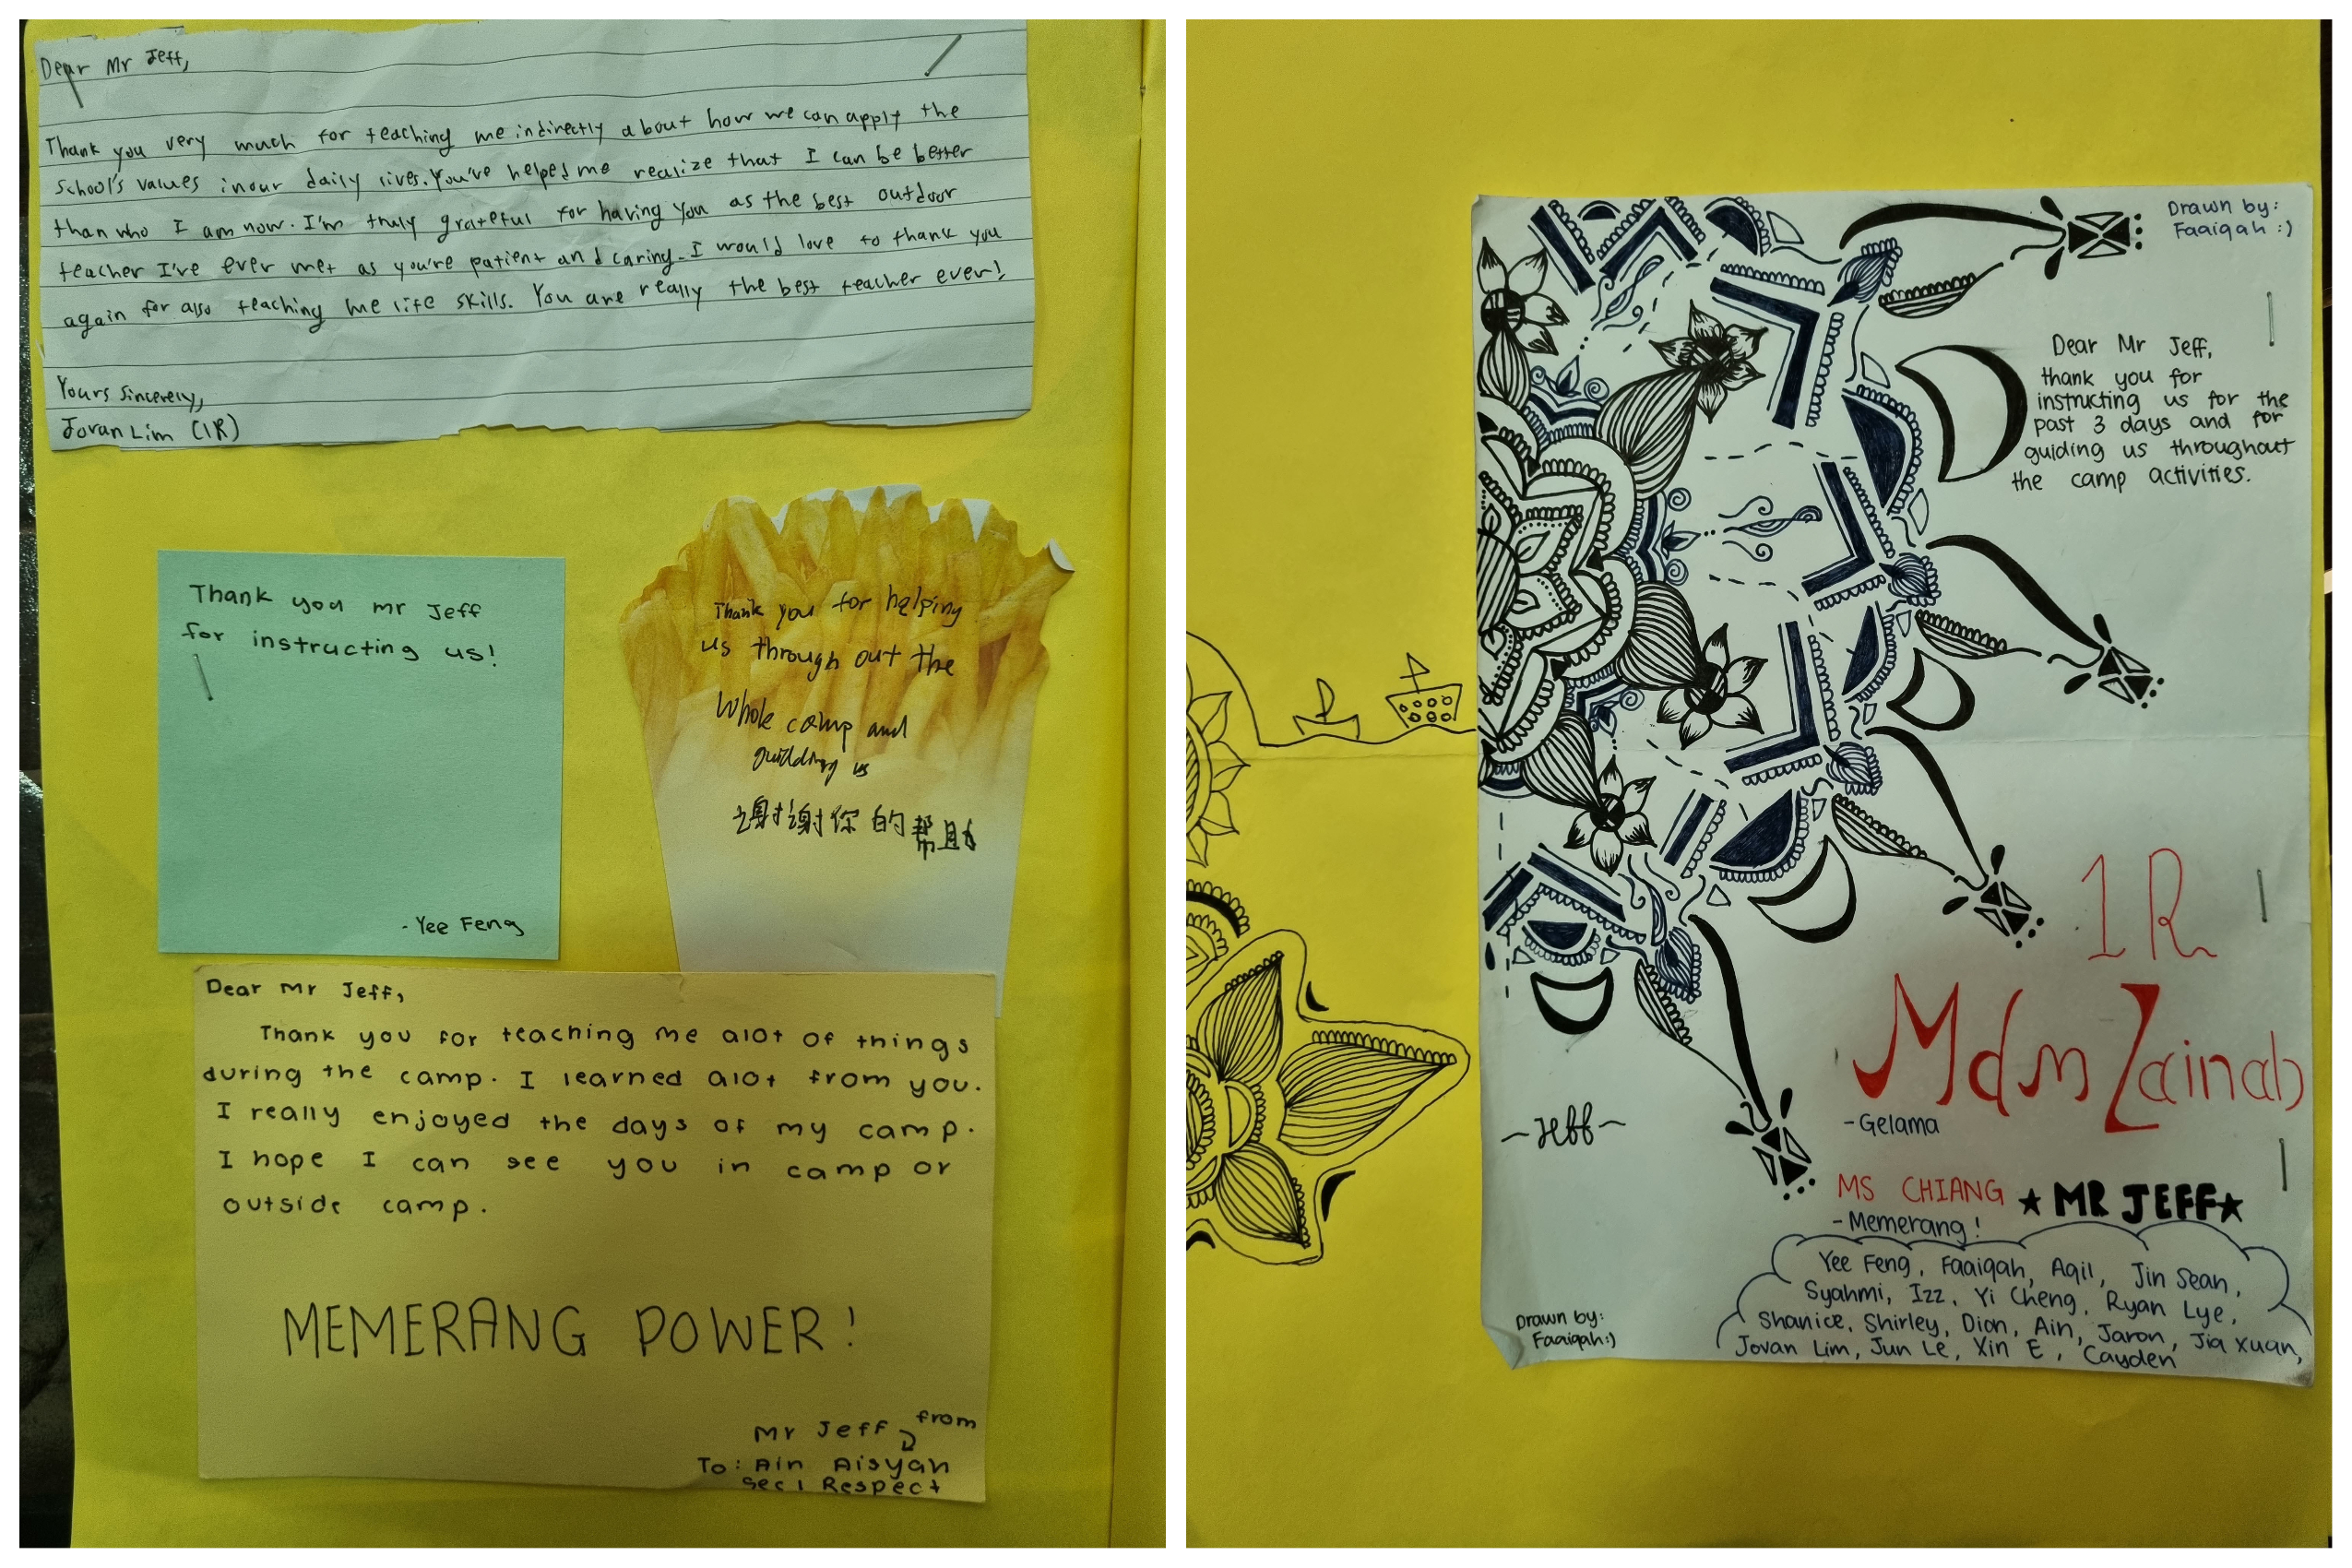 Dear Mr Jeff,
Thank you very much for teaching me indirectly about how we can apply the
school's values in our daily lives. You've helped me realize that I can be better
than who I am now. I'm truly grateful for having you as the best outdoor
teacher I've ever met as you're patient and caring. I would love to thank you
again for also teaching me life skills. You are really the best teacher ever!
Yours sincerely,
Jovan Lim (1R)
Thank you mr Jeff
for instructing us!
- Yee Feng
Thank you for helping
us through out the
whole camp and
guidding us
谢谢你的帮助
Dear Mr Jeff,
Thank you for teaching me alot of things
during the camp. I learned alot from you.
I really enjoyed the days of my camp.
I hope I can see you in camp or
outside camp.
MEMERANG POWER!
Mr Jeff from
To: Ain Aisyah
Sec 1 Respect
Drawn by:
Faaiqah :)
Dear Mr Jeff,
thank you for
instructing us for the
past 3 days and for
guiding us throughout
the camp activities.
1R
Mdm Zainab
- Gelama
~Jeff~
MS CHIANG ★ MR JEFF★
- Memerang!
Yee Feng, Faaiqah, Aqil, Jin Sean,
Syahmi, Izz, Yi Cheng, Ryan Lye,
Shanice, Shirley, Dion, Ain, Jaron, Jia Xuan,
Jovan Lim, Jun Le, Xin E, Cayden
Drawn by:
Faaiqah:)